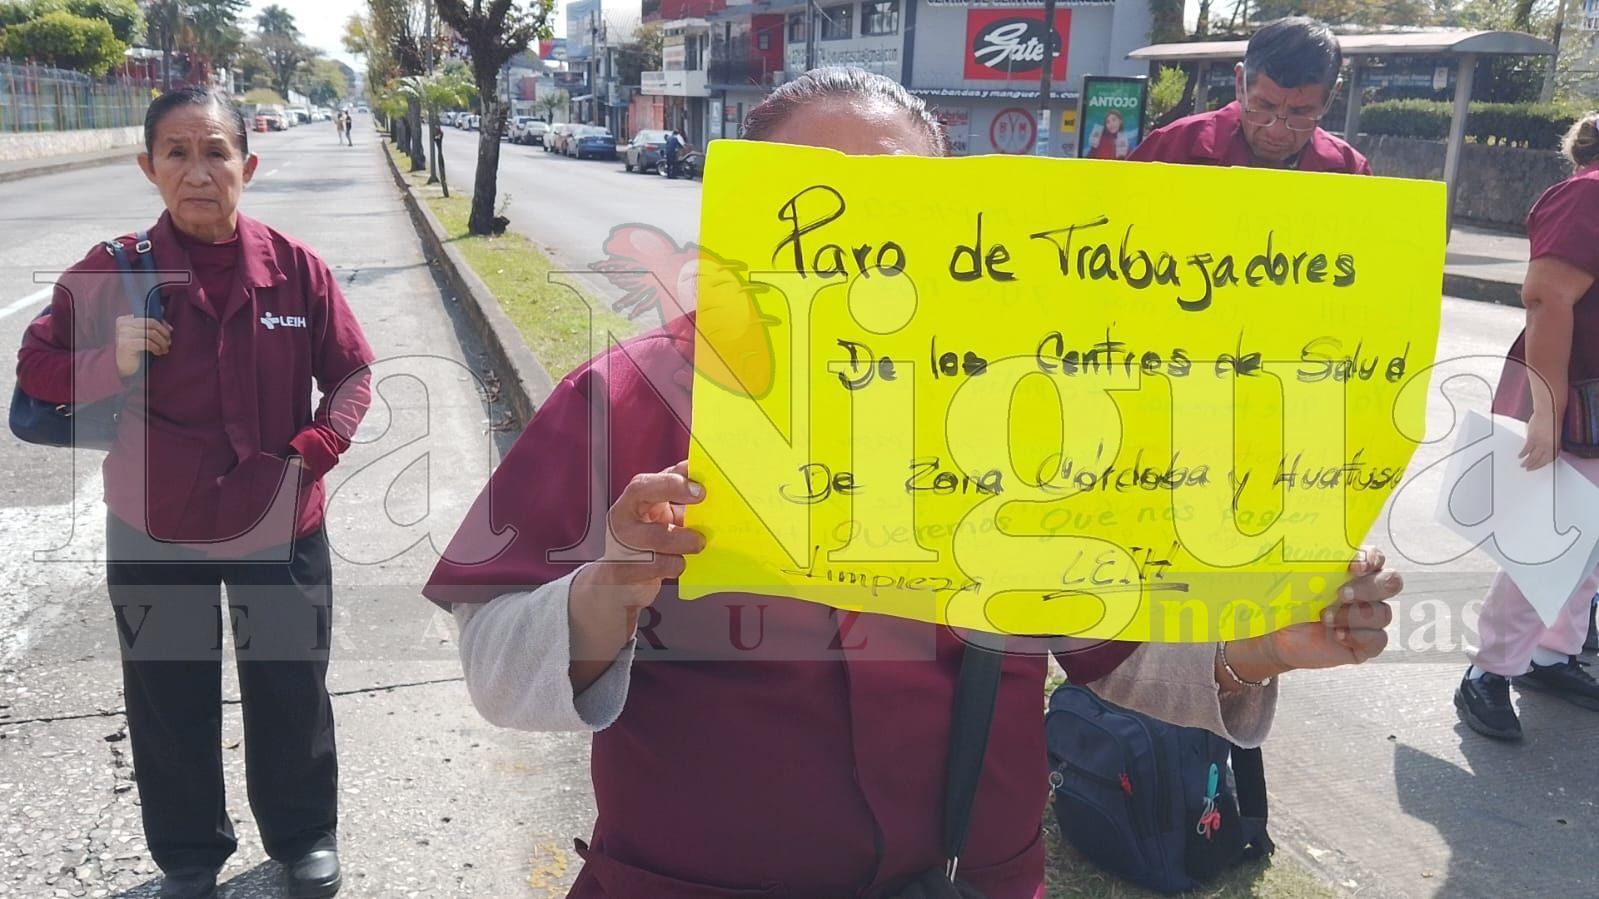 Gates
www.bandasymangueras
ANTOJO
LEIH
Paro de Trabajadores
De los Centros de Salud
De Zona Córdoba y Huatusco
Queremos Que nos Paguen
Aguinal
Limpieza LEIH
La Nigua
VERACRUZ noticias